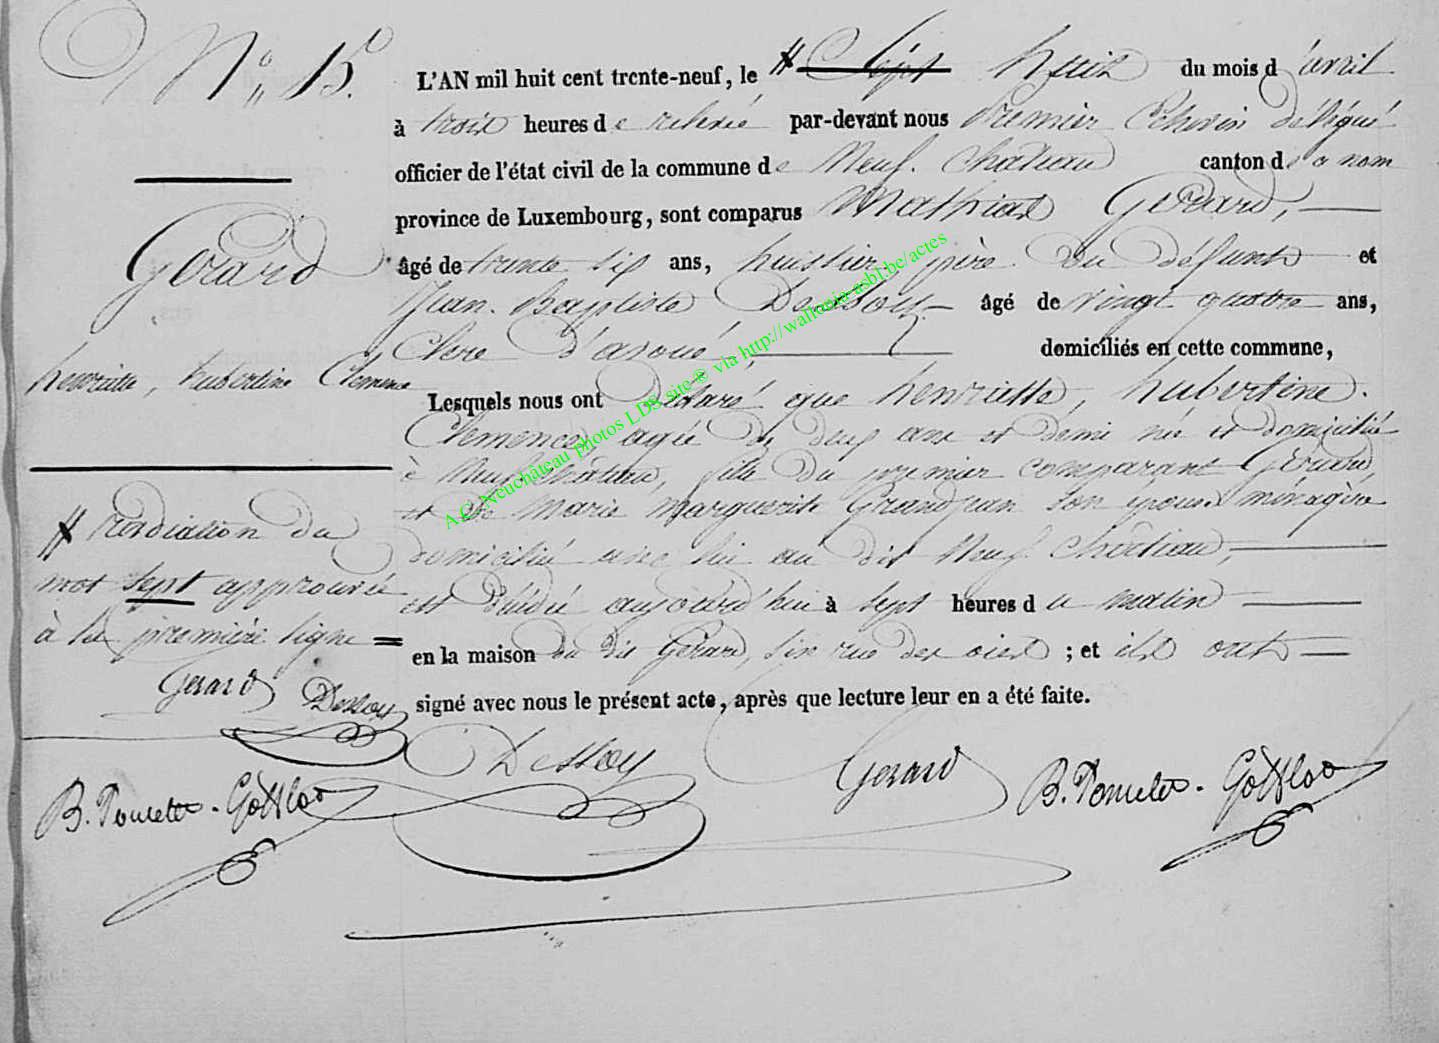 N° 15.
Gérard
henriette, hubertine Clemence
# Radiation du
mot sept approuvée
à la première ligne =
Gerard Dessoy
B. Poncelet-Gottloo
L'AN mil huit cent trente-neuf, le # Sept huit du mois d'avril
à trois heures de relevée par-devant nous Premier Echevin délégué
officier de l'état civil de la commune de Neuf-Chateau canton de ce nom
province de Luxembourg, sont comparus Mathias Gerard,
âgé de trente six ans, huissier, père du défunt et
Jean-Baptiste Dessoy âgé de vingt quatre ans,
Clerc d'avoué, domiciliés en cette commune,
Lesquels nous ont déclaré que henriette, hubertine.
Clemence, agée de deux ans et demi née et domiciliée
à Neufchateau, fille du premier comparant Gérard,
et de Marie Marguerite Grandjean son epouse ménagère
domiciliée avec lui au dit Neuf-Château,
est décédée aujourd'hui à sept heures du matin
en la maison du dit Gérard, six rue des oies ; et ils ont
signé avec nous le présent acte, après que lecture leur en a été faite.
Dessoy Gerard B. Poncelet-Gottloo
A.C. Neuchâteau photos LDS site® via http://wallonia-asbl.be/actes